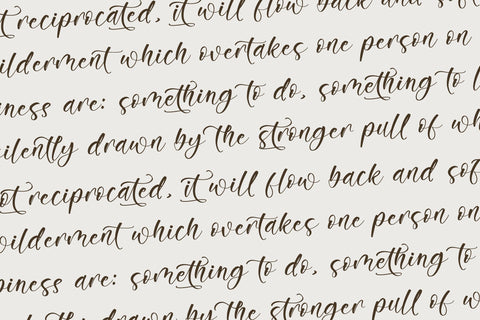 t reciprocated, it will flow back and sof
ilderment which overtakes one person on
iness are: something to do, something to l
ilently drawn by the stronger pull of wh
ot reciprocated, it will flow back and sof
wilderment which overtakes one person on
piness are: something to do, something to
by the stronger pull of w